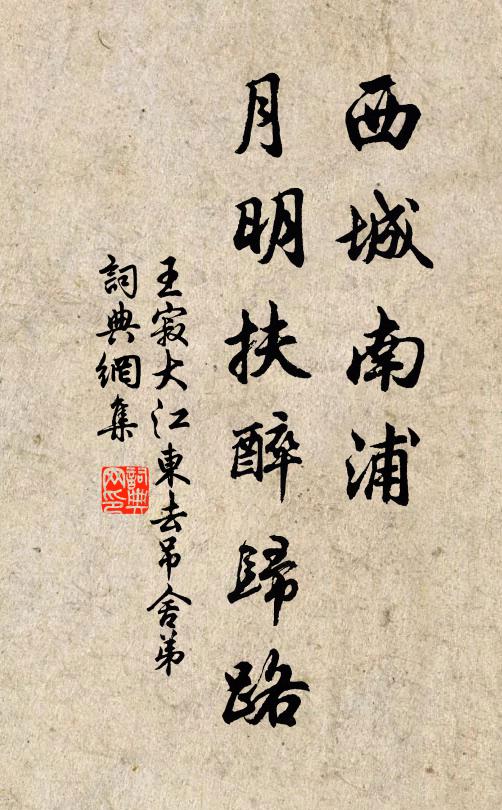 西城南浦
月明扶醉歸路
王寂大江東去吊舍弟
詞典網集
詞典網印